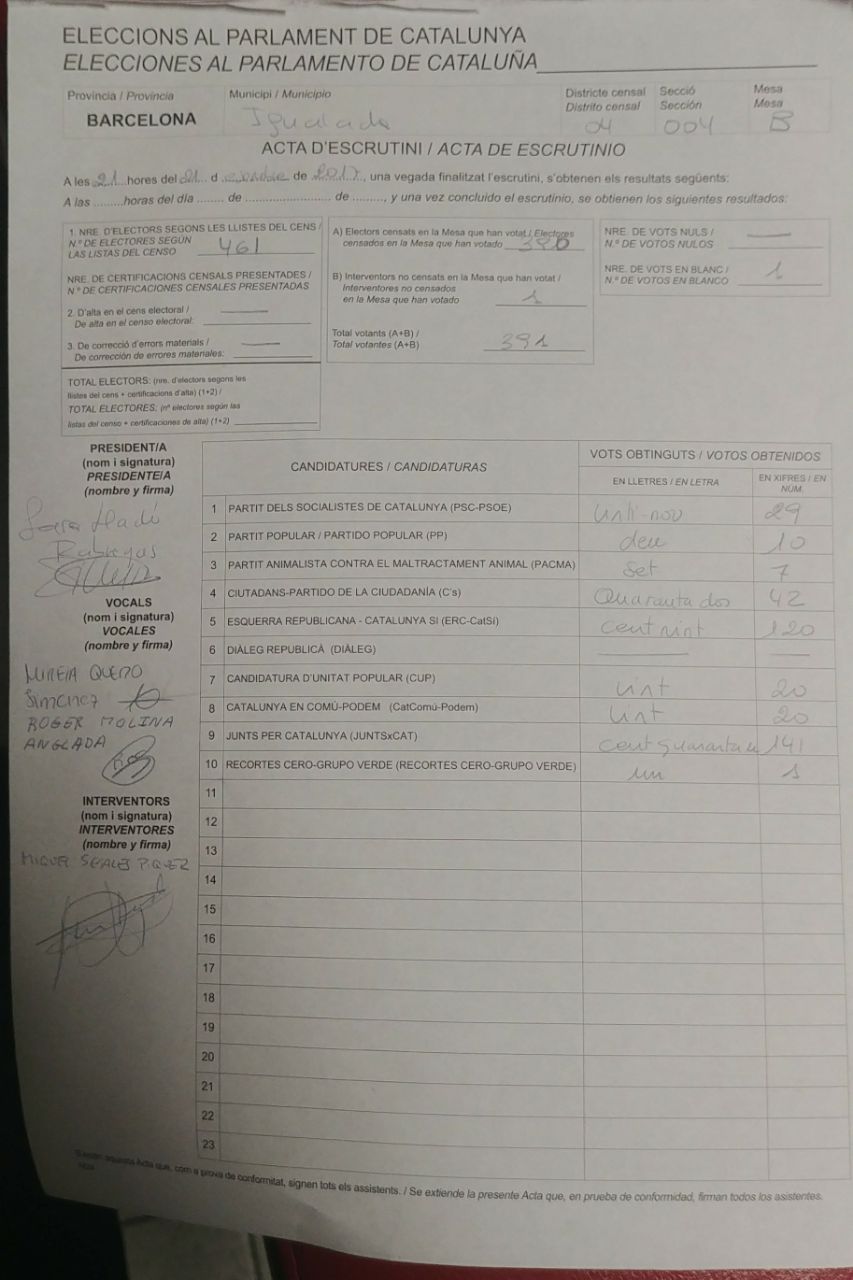 ELECCIONS AL PARLAMENT DE CATALUNYA
ELECCIONES AL PARLAMENTO DE CATALUÑA
Província / Provincia
BARCELONA
Municipi / Municipio
Igualada
Districte censal
Distrito censal
04
Secció
Sección
004
Mesa
Mesa
B
ACTA D'ESCRUTINI / ACTA DE ESCRUTINIO
A les 21 hores del 21 d de 2017, una vegada finalitzat l'escrutini, s'obtenen els resultats següents:
A las .........horas del día ........ de .................. de ........., y una vez concluido el escrutinio, se obtienen los siguientes resultados:
1. NRE. D'ELECTORS SEGONS LES LLISTES DEL CENS /
N.º DE ELECTORES SEGÚN
LAS LISTAS DEL CENSO 461
NRE. DE CERTIFICACIONS CENSALS PRESENTADES /
N.º DE CERTIFICACIONES CENSALES PRESENTADAS
2. D'alta en el cens electoral /
De alta en el censo electoral:
3. De correcció d'errors materials /
De corrección de errores materiales:
TOTAL ELECTORS: (nre. d'electors segons les
llistes del cens + certificacions d'alta) (1+2) /
TOTAL ELECTORES: (nº electores según las
listas del censo + certificaciones de alta) (1+2)
A) Electors censats en la Mesa que han votat / Electores
censados en la Mesa que han votado 390
B) Interventors no censats en la Mesa que han votat /
Interventores no censados
en la Mesa que han votado 1
Total votants (A+B) /
Total votantes (A+B) 391
NRE. DE VOTS NULS /
N.º DE VOTOS NULOS
NRE. DE VOTS EN BLANC /
N.º DE VOTOS EN BLANCO 1
PRESIDENT/A
(nom i signatura)
PRESIDENTE/A
(nombre y firma)
VOCALS
(nom i signatura)
VOCALES
(nombre y firma)
ROGER MOLINA
ANGLADA
INTERVENTORS
(nom i signatura)
INTERVENTORES
(nombre y firma)
CANDIDATURES / CANDIDATURAS
VOTS OBTINGUTS / VOTOS OBTENIDOS
EN LLETRES / EN LETRA
EN XIFRES / EN NÚM.
1 PARTIT DELS SOCIALISTES DE CATALUNYA (PSC-PSOE) vint-nou 29
2 PARTIT POPULAR / PARTIDO POPULAR (PP) deu 10
3 PARTIT ANIMALISTA CONTRA EL MALTRACTAMENT ANIMAL (PACMA) Set 7
4 CIUTADANS-PARTIDO DE LA CIUDADANÍA (C's) Quaranta dos 42
5 ESQUERRA REPUBLICANA - CATALUNYA SI (ERC-CatSí) cent vint 120
6 DIÀLEG REPUBLICÀ (DIÀLEG)
7 CANDIDATURA D'UNITAT POPULAR (CUP) vint 20
8 CATALUNYA EN COMÚ-PODEM (CatComú-Podem) vint 20
9 JUNTS PER CATALUNYA (JUNTSxCAT) cent quaranta u 141
10 RECORTES CERO-GRUPO VERDE (RECORTES CERO-GRUPO VERDE) un 1
11
12
13
14
15
16
17
18
19
20
21
22
23
aquesta Acta que, com a prova de conformitat, signen tots els assistents. / Se extiende la presente Acta que, en prueba de conformidad, firman todos los asistentes.